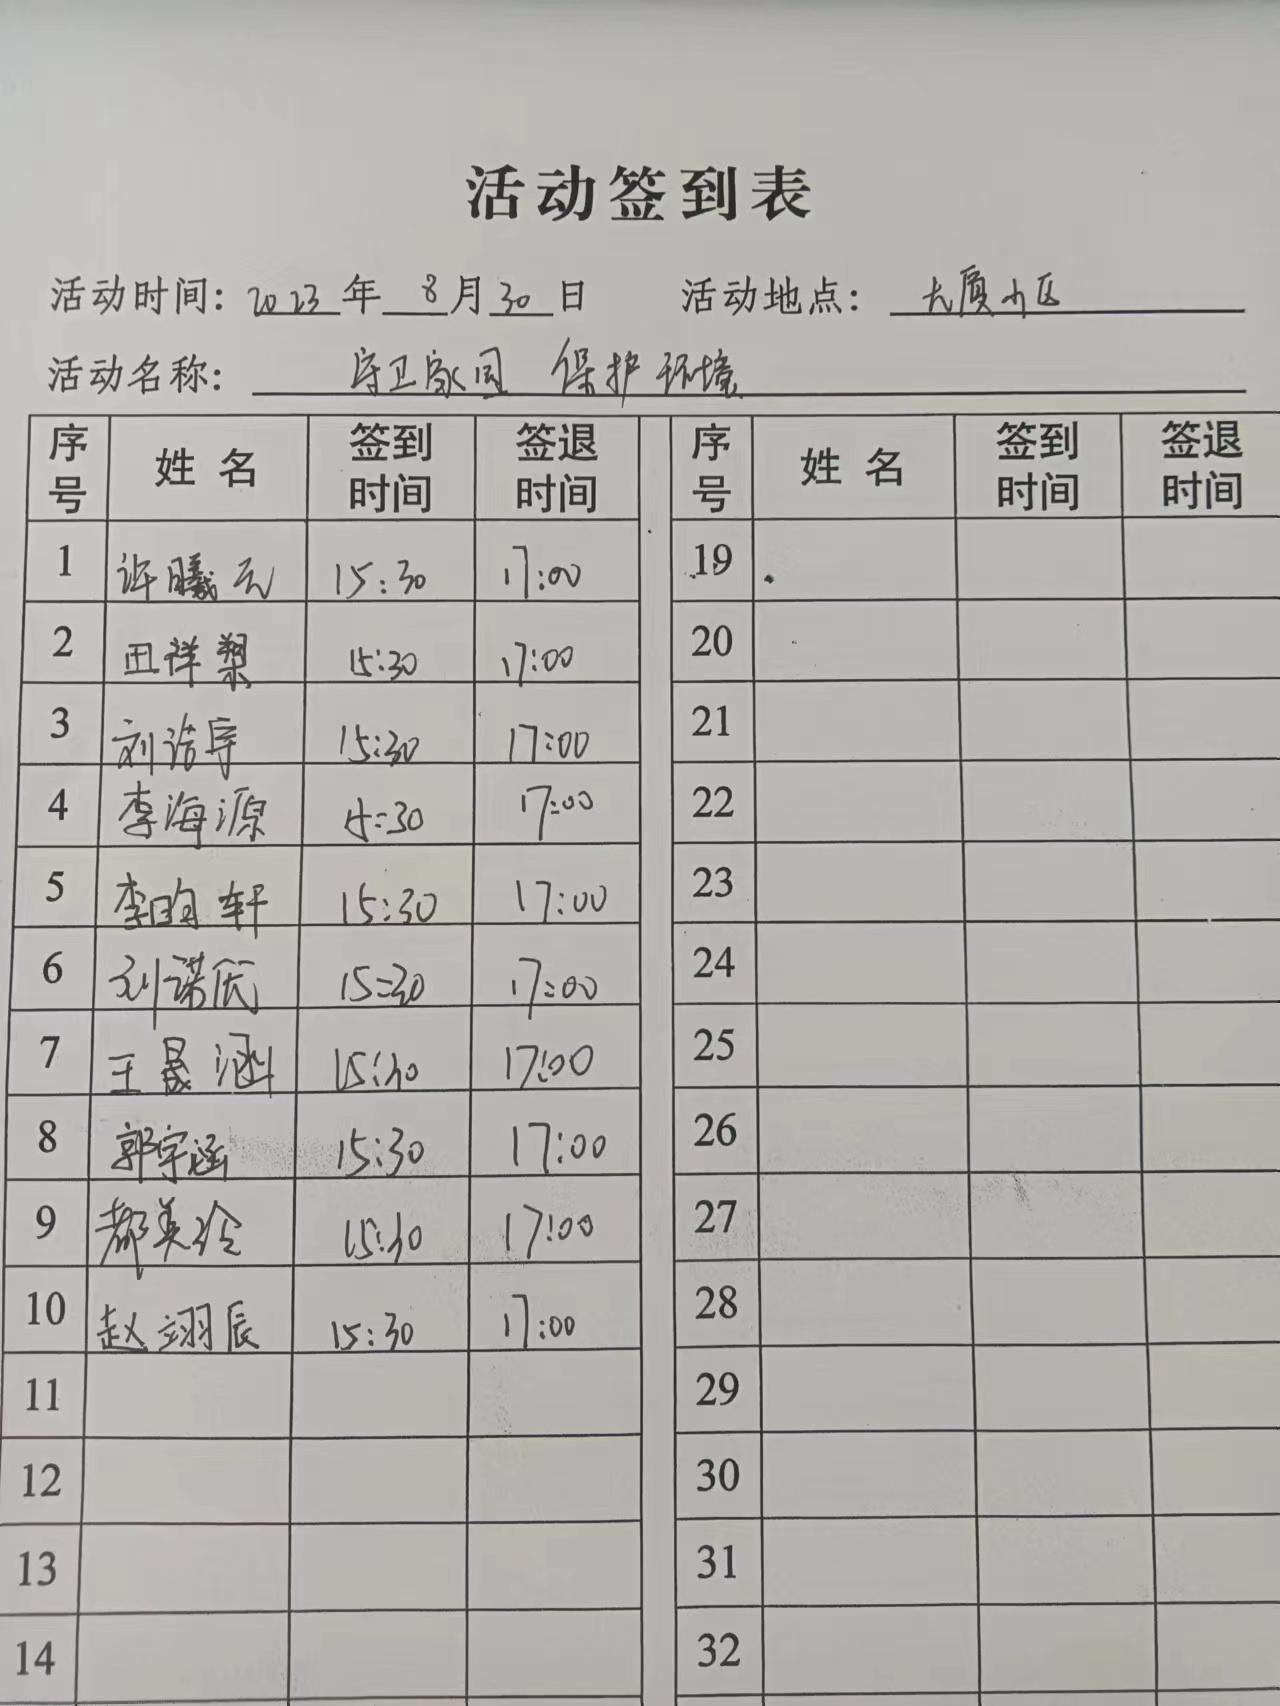 活动签到表
活动时间：2023年 8月30日 活动地点：大厦小区
活动名称：守卫家园 保护环境
序号 姓名 签到时间 签退时间 序号 姓名 签到时间 签退时间
1 许曦元 15:30 17:00 19
2 田祥槊 15:30 17:00 20
3 刘诰宇 15:30 17:00 21
4 李海源 15:30 17:00 22
5 李昀轩 15:30 17:00 23
6 刘诺 15:30 17:00 24
7 王晟涵 15:30 17:00 25
8 郭宇涵 15:30 17:00 26
9 都美伶 15:30 17:00 27
10 赵翊辰 15:30 17:00 28
11 29
12 30
13 31
14 32